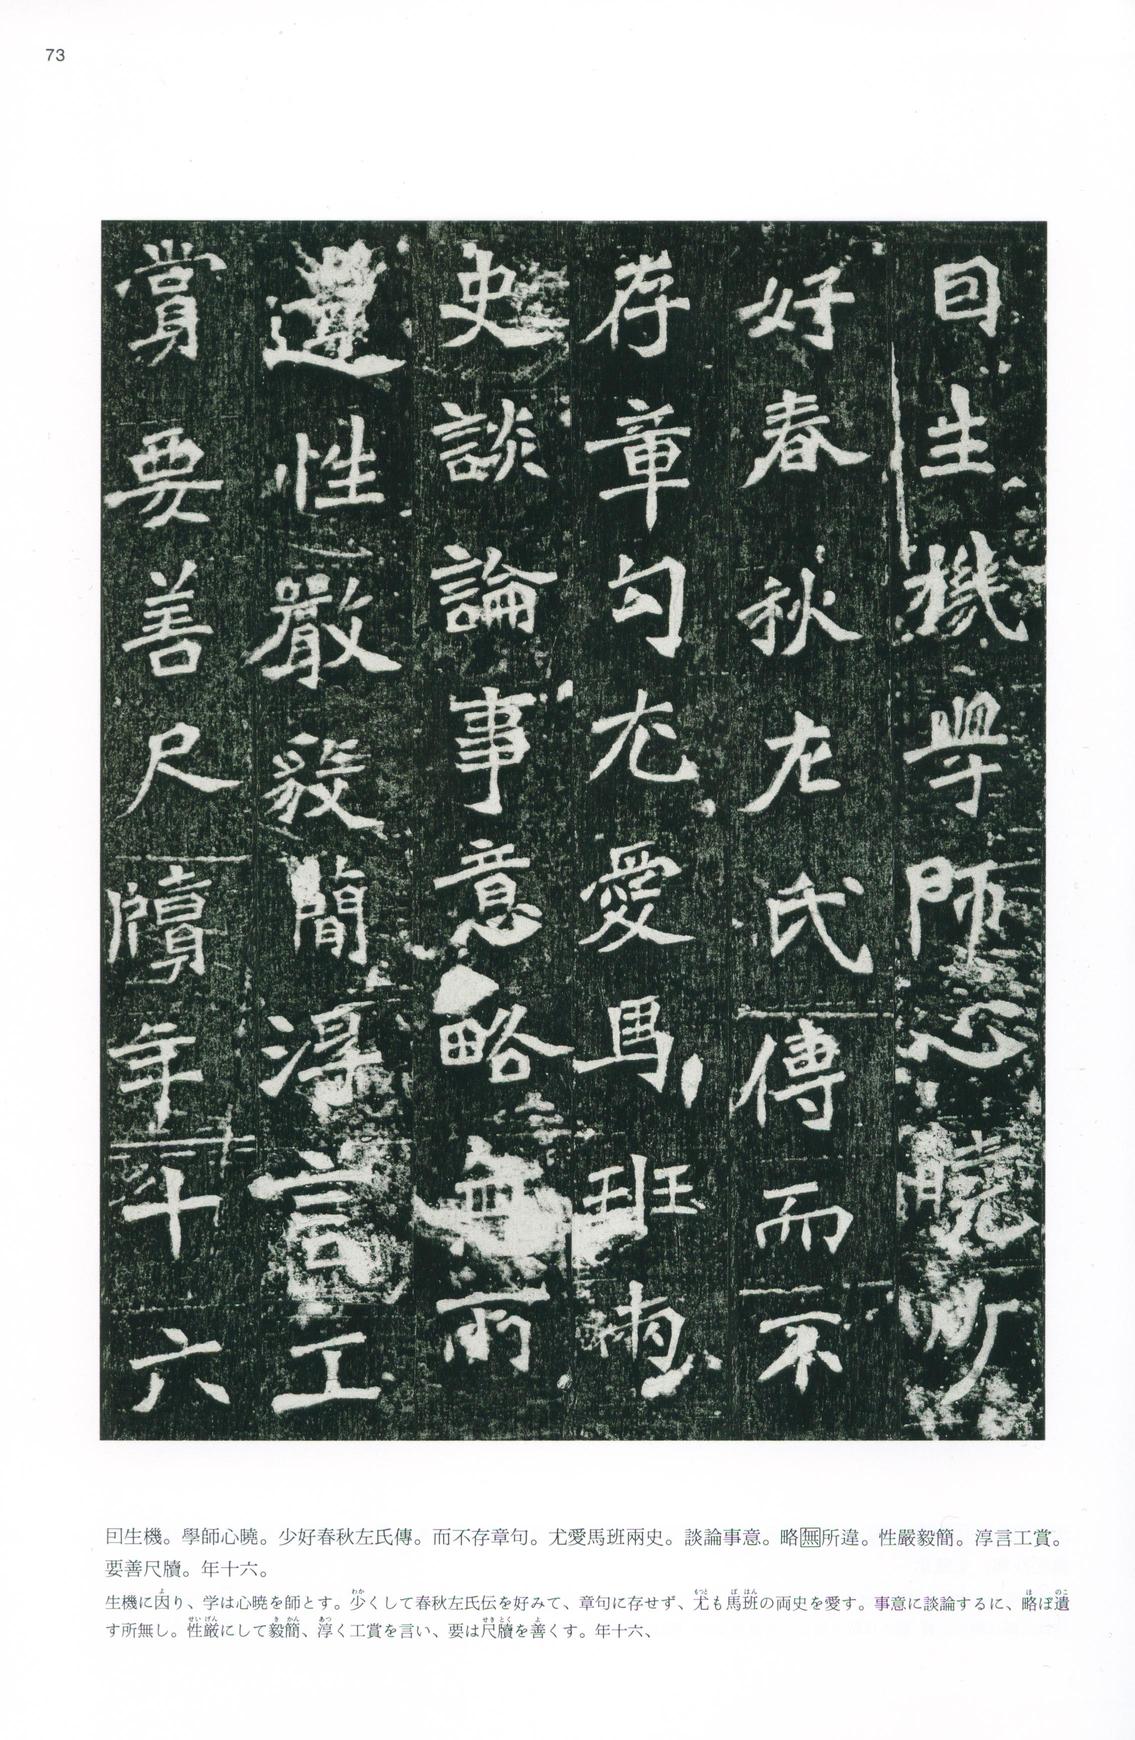 73
囙生機學師心曉少
好春秋左氏傳而不
存章句尤愛馬班兩
史談論事意略無所
遺性嚴毅簡淳言工
賞要善尺牘年十六
囙生機。學師心曉。少好春秋左氏傳。而不存章句。尤愛馬班兩史。談論事意。略無所違。性嚴毅簡。淳言工賞。
要善尺牘。年十六。
よ わか もっと ば はん ほ のこ
生機に因り、学は心暁を師とす。少くして春秋左氏伝を好みて、章句に存せず、尤も馬班の両史を愛す。事意に談論するに、略ぼ遺
せい げん き かん あつ せき とく よ
す所無し。性厳にして毅簡、淳く工賞を言い、要は尺牘を善くす。年十六、